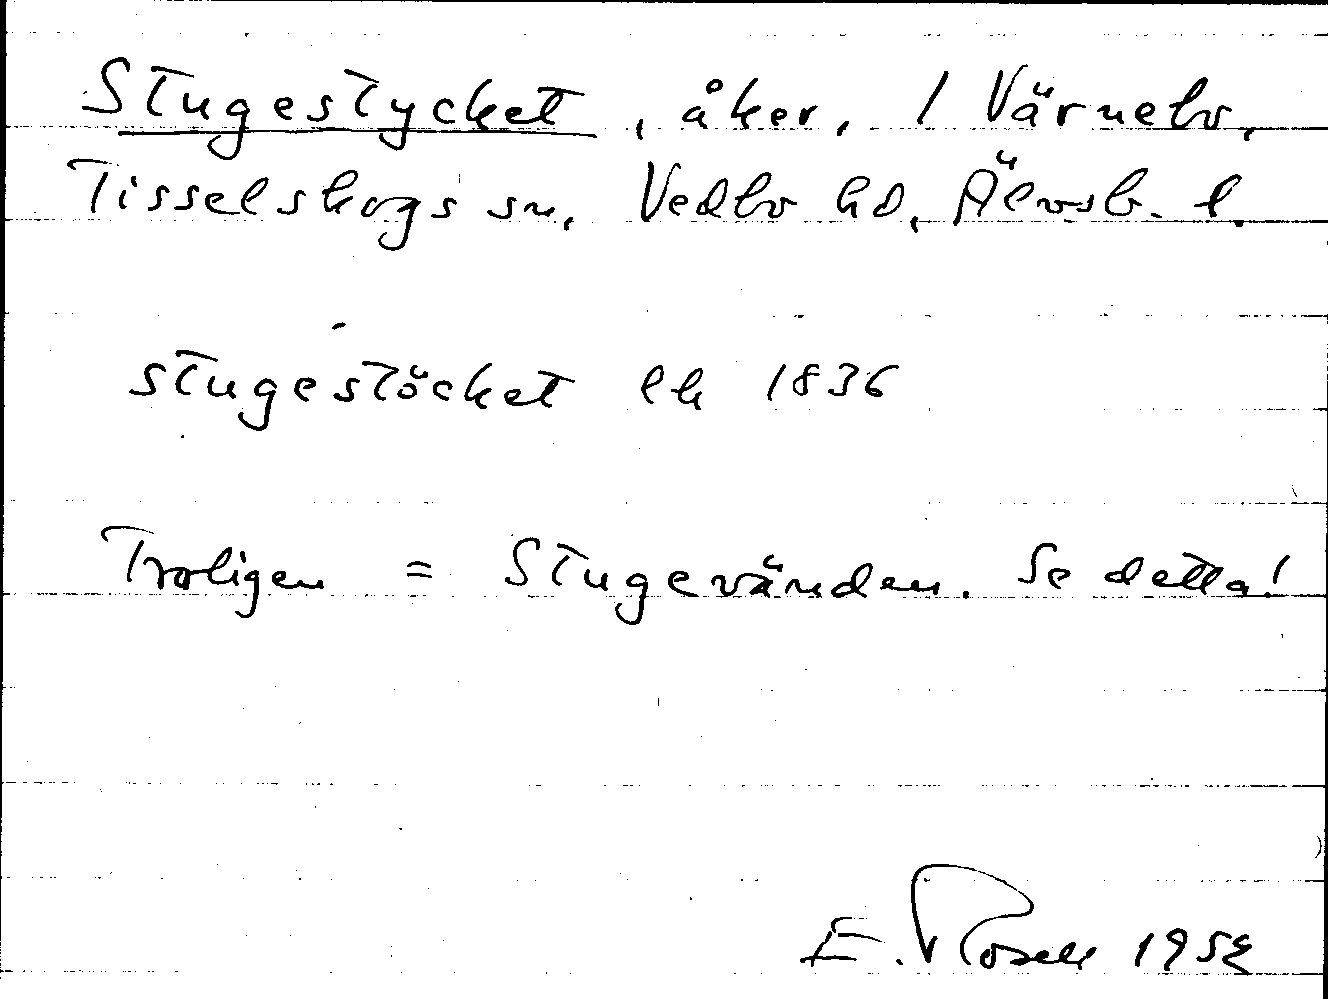 Stugestycket, åker, / Värnebo,
Tisselskogs sn, Vedbo hd, Älvsb. l.
stugestöcket lh 1836
Troligen = Stugevänden. Se detta!
E. Rosell